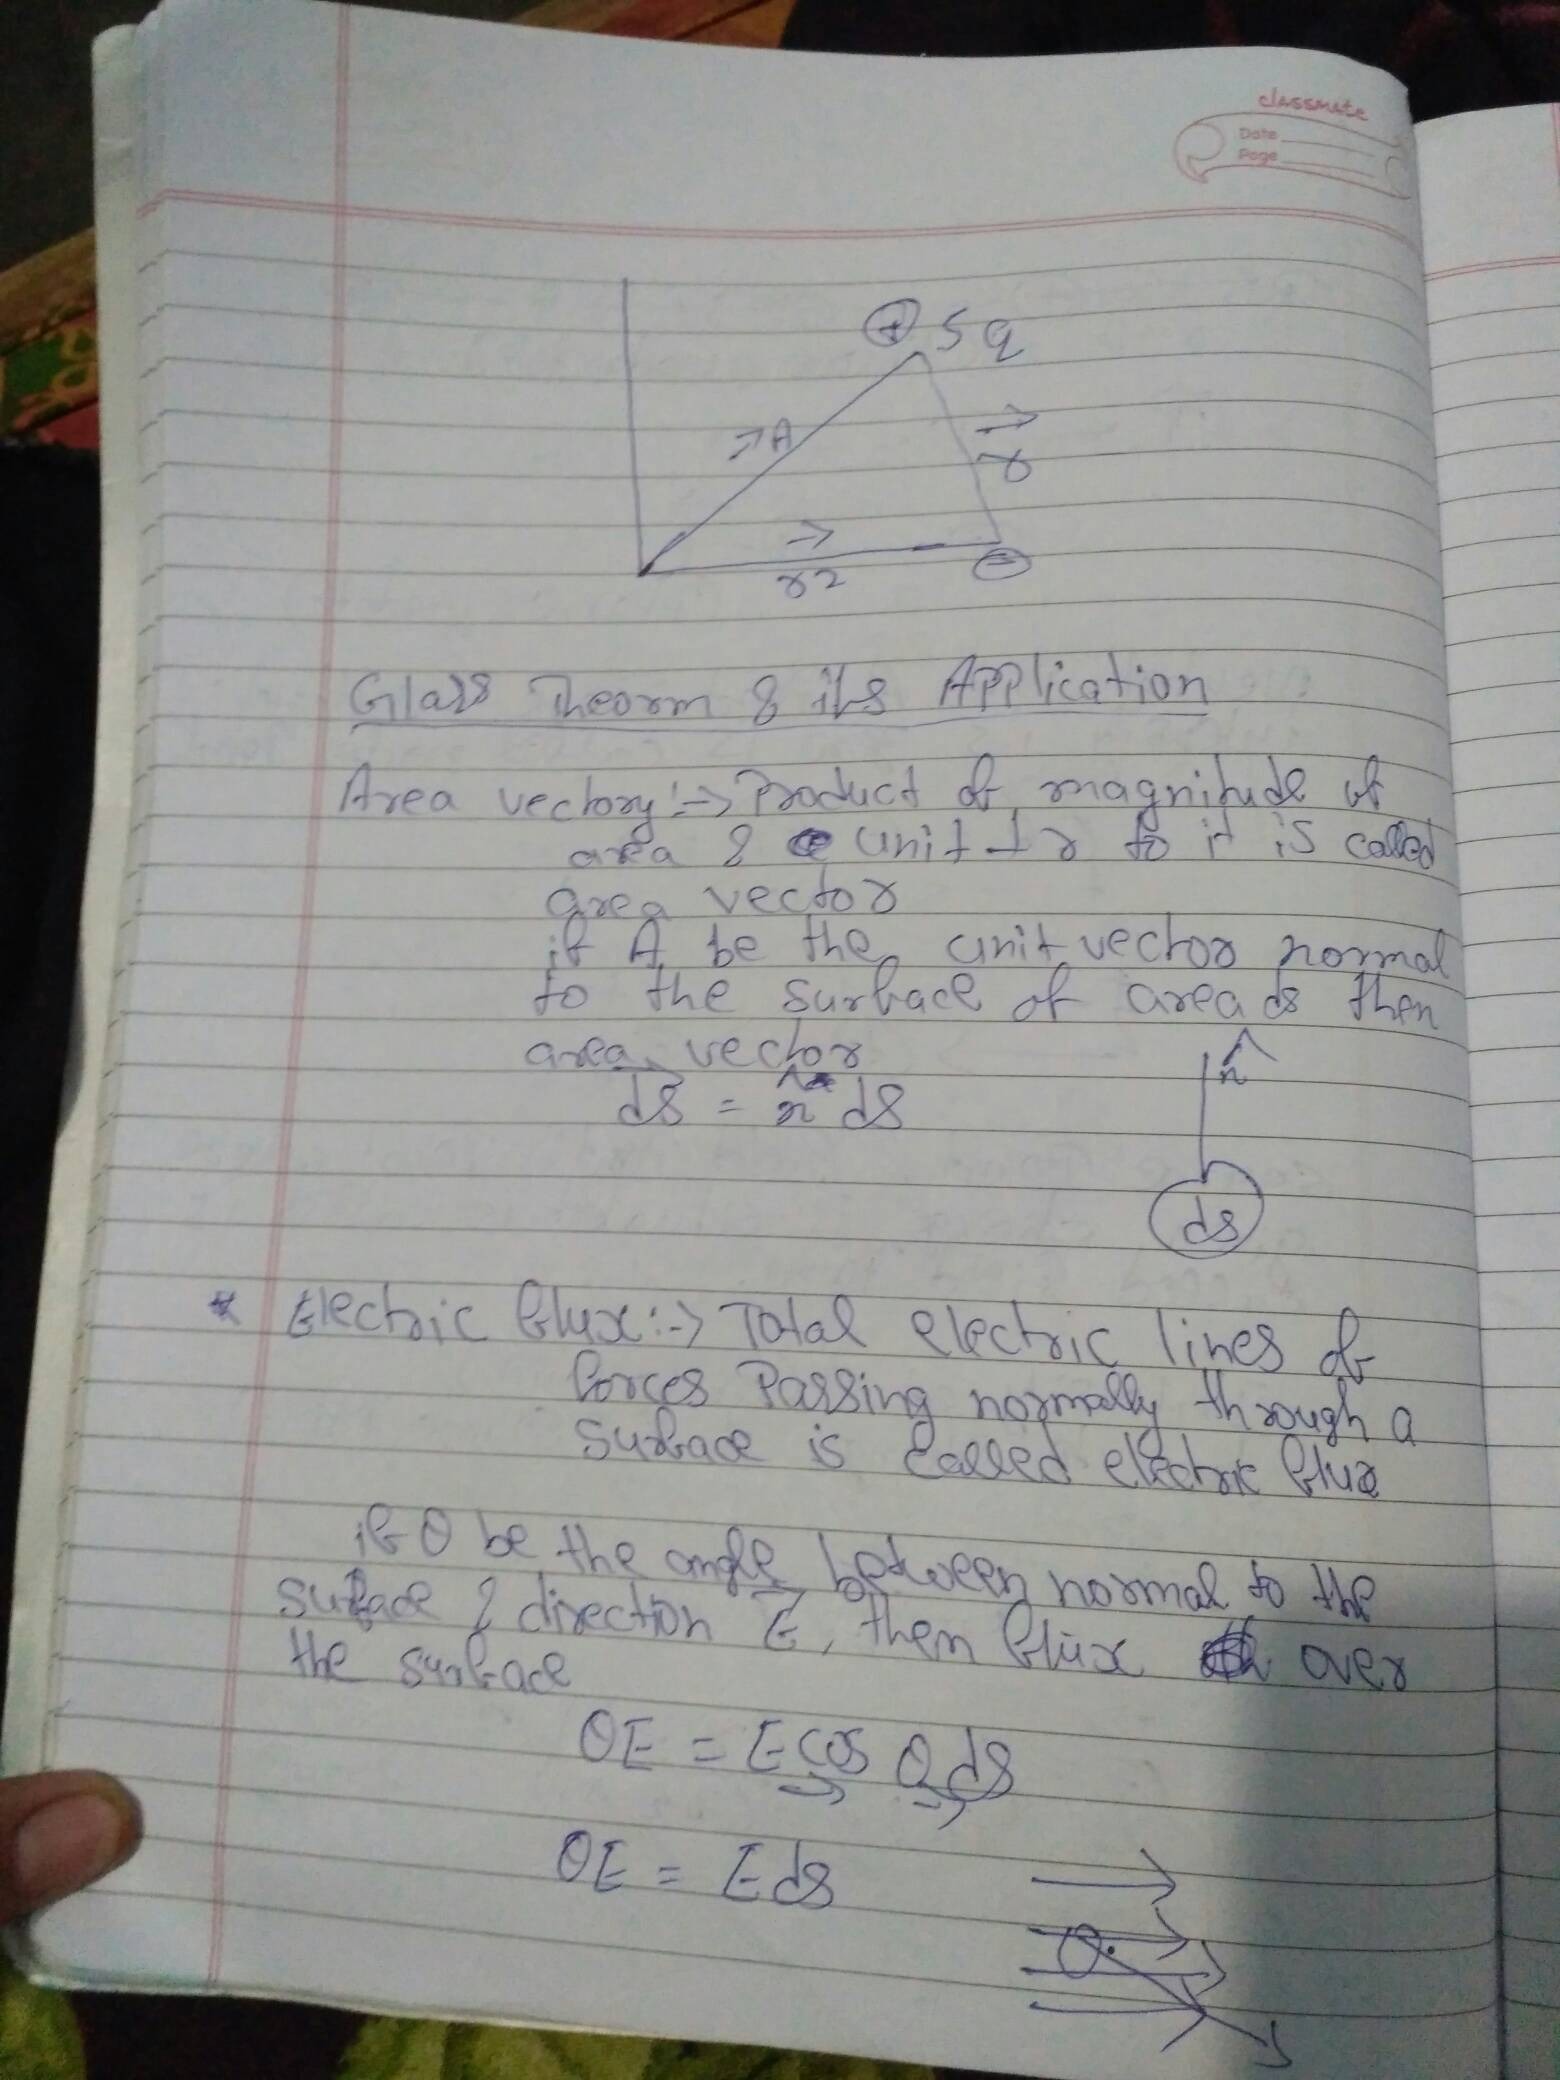 classmate
Date
Page
+ S q
→ A
→
r
→
r2
Glass Theorm & its Application
Area vectory :→ Product of magnitude of
area & unit ⊥r to it is called
area vector
if A be the unit vector normal
to the surface of area ds then
area vector
n̂
→ds = n̂ ds
ds
* Electric flux :→ Total electric lines of
forces Passing normally through a
surface is called electric flux
if θ be the angle between normal to the
surface & direction →E, then flux over
the surface
θE = E cos θ ds
→ →
θE = E ds